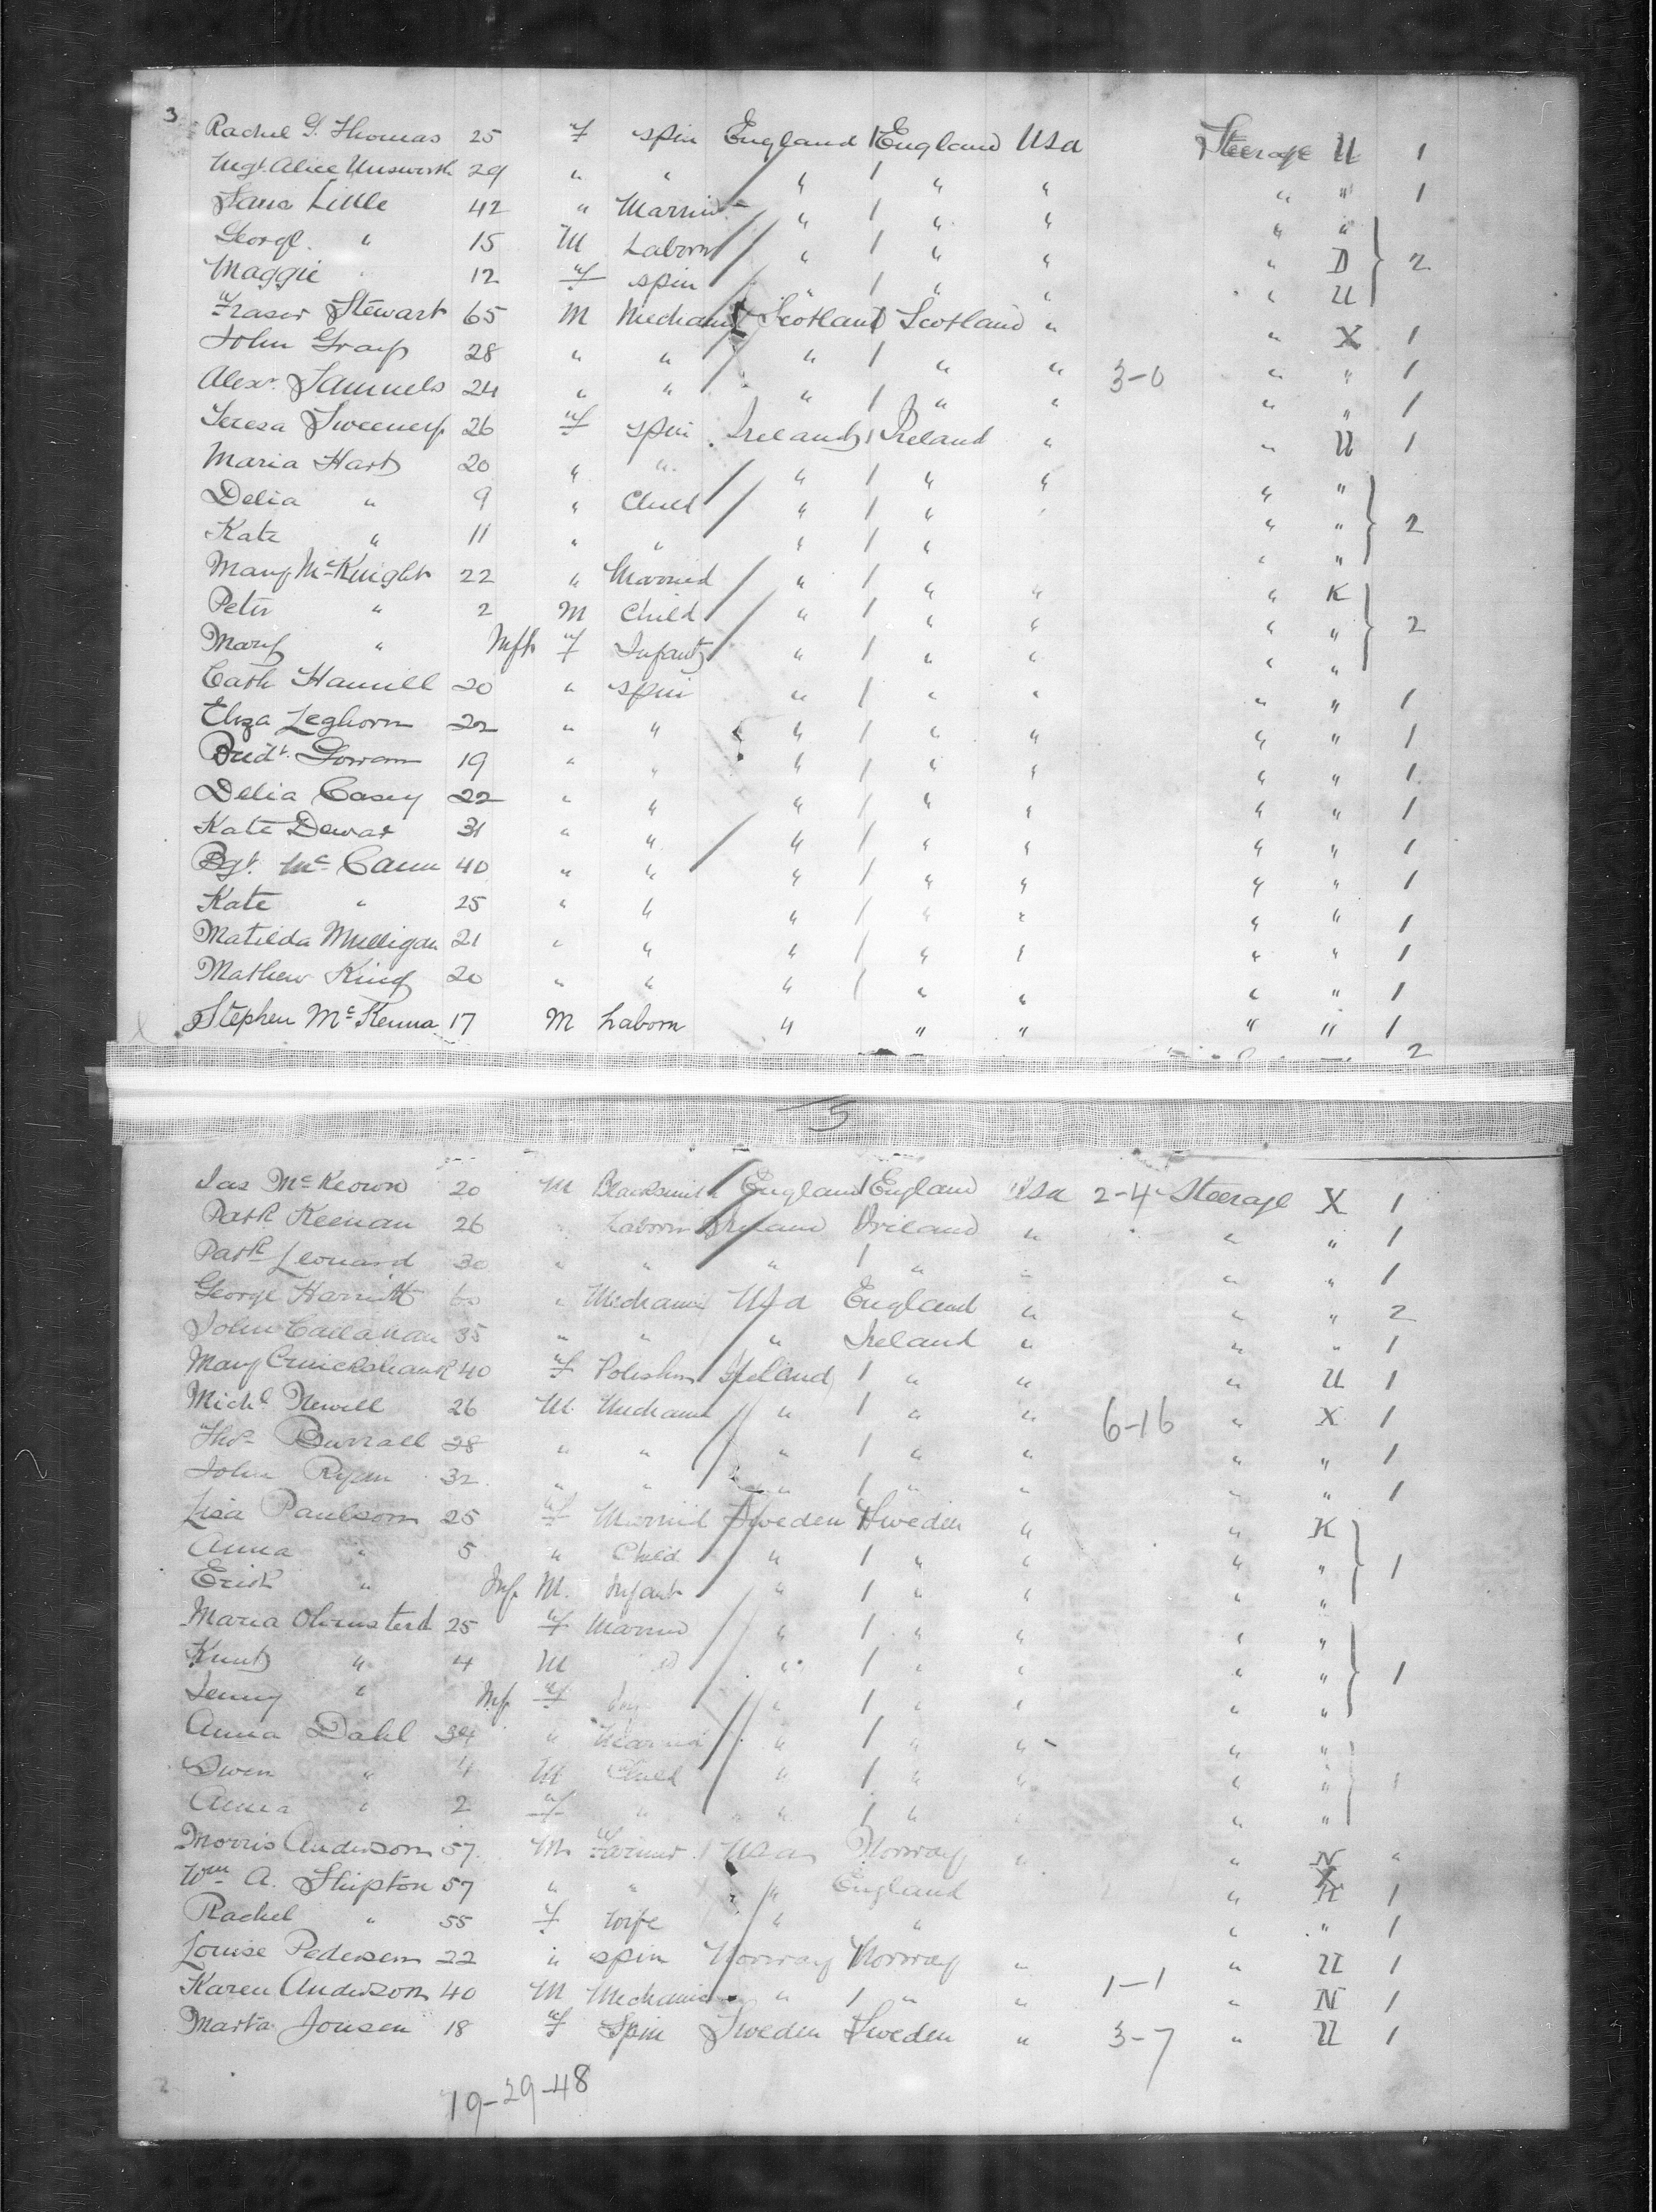 3
Rachel G. Thomas 25 f spin England / England Usa Steerage U 1
Mgt. Alice Unsworth 29 " " " / " " " " 1
Jane Little 42 " Married " / " " " "
George " 15 M Laborer " / " " " D 2
Maggie " 12 f spin " / " " " U
Fraser Stewart 65 M Mechanic Scotland Scotland " " X 1
John Gray 28 " " " / " " 3-0 " " 1
Alexr. Samuels 24 " " " / " " " " 1
Teresa Sweeney 26 f spin Ireland / Ireland " " U 1
Maria Hart 20 " " " / " " " "
Delia " 9 " Child " / " " " " 2
Kate " 11 " " " / " " "
Mary McKnight 22 " Married " / " " " K
Peter " 2 M Child " / " " " " 2
Mary " Inft f Infant " / " " " "
Cath Hamill 20 " spin " / " " " " 1
Eliza Leghorn 22 " " " / " " " " 1
Bridt. 19 " " " / " " " " 1
Delia Casey 22 " " " / " " " " 1
Kate Dewar 31 " " " / " " " " 1
Bgt. McCann 40 " " " / " " " " 1
Kate " 25 " " " / " " " " 1
Matilda Mulligan 21 " " " / " " " " 1
Mathew King 20 " " " / " " " " 1
Stephen McKenna 17 M Laborer " " " " " 1
2
5
Jas McKeown 20 M Blacksmith England / England Usa 2-4 Steerage X 1
Patk Keenan 26 " Laborer Ireland Ireland " " " 1
Patk Leonard 30 " " " / " " " " 1
George 60 " Mechanic Usa England " " " 2
John Callahan 35 " " " Ireland " " " 1
Mary Cruickshank 40 f Ireland / " " " U 1
Michl. Newell 26 M Mechanic " / " " 6-16 " X 1
Thos Burrall 28 " " " / " " " " 1
John Ryan 32 " " " / " " " " 1
Lisa Paulsson 25 f Married Sweden / Sweden " " K
Anna " 5 " Child " / " " " " 1
Erick " Inf M. Infant " / " " " "
Maria Olmsterd 25 f Married " / " " " "
Knut " 4 M " / " " " " 1
Jenny " Inf f " / " " " "
Anna Dahl 34 " Married " / " " " "
Swen " 4 M Child " / " " " " 1
Anna " 2 f " " / " " " "
Morris Anderson 57 M Farmer Usa Norway " " N "
Wm A. Shipton 57 " " " England " X K 1
Rachel " 55 f wife " " " " 1
Louise Pedersen 22 " spin Norway Norway " " U 1
Karen Anderson 40 M Mechanic " / " " 1-1 " N 1
Marta Jonsen 18 f Spin Sweden Sweden " 3-7 " U 1
19-29-48